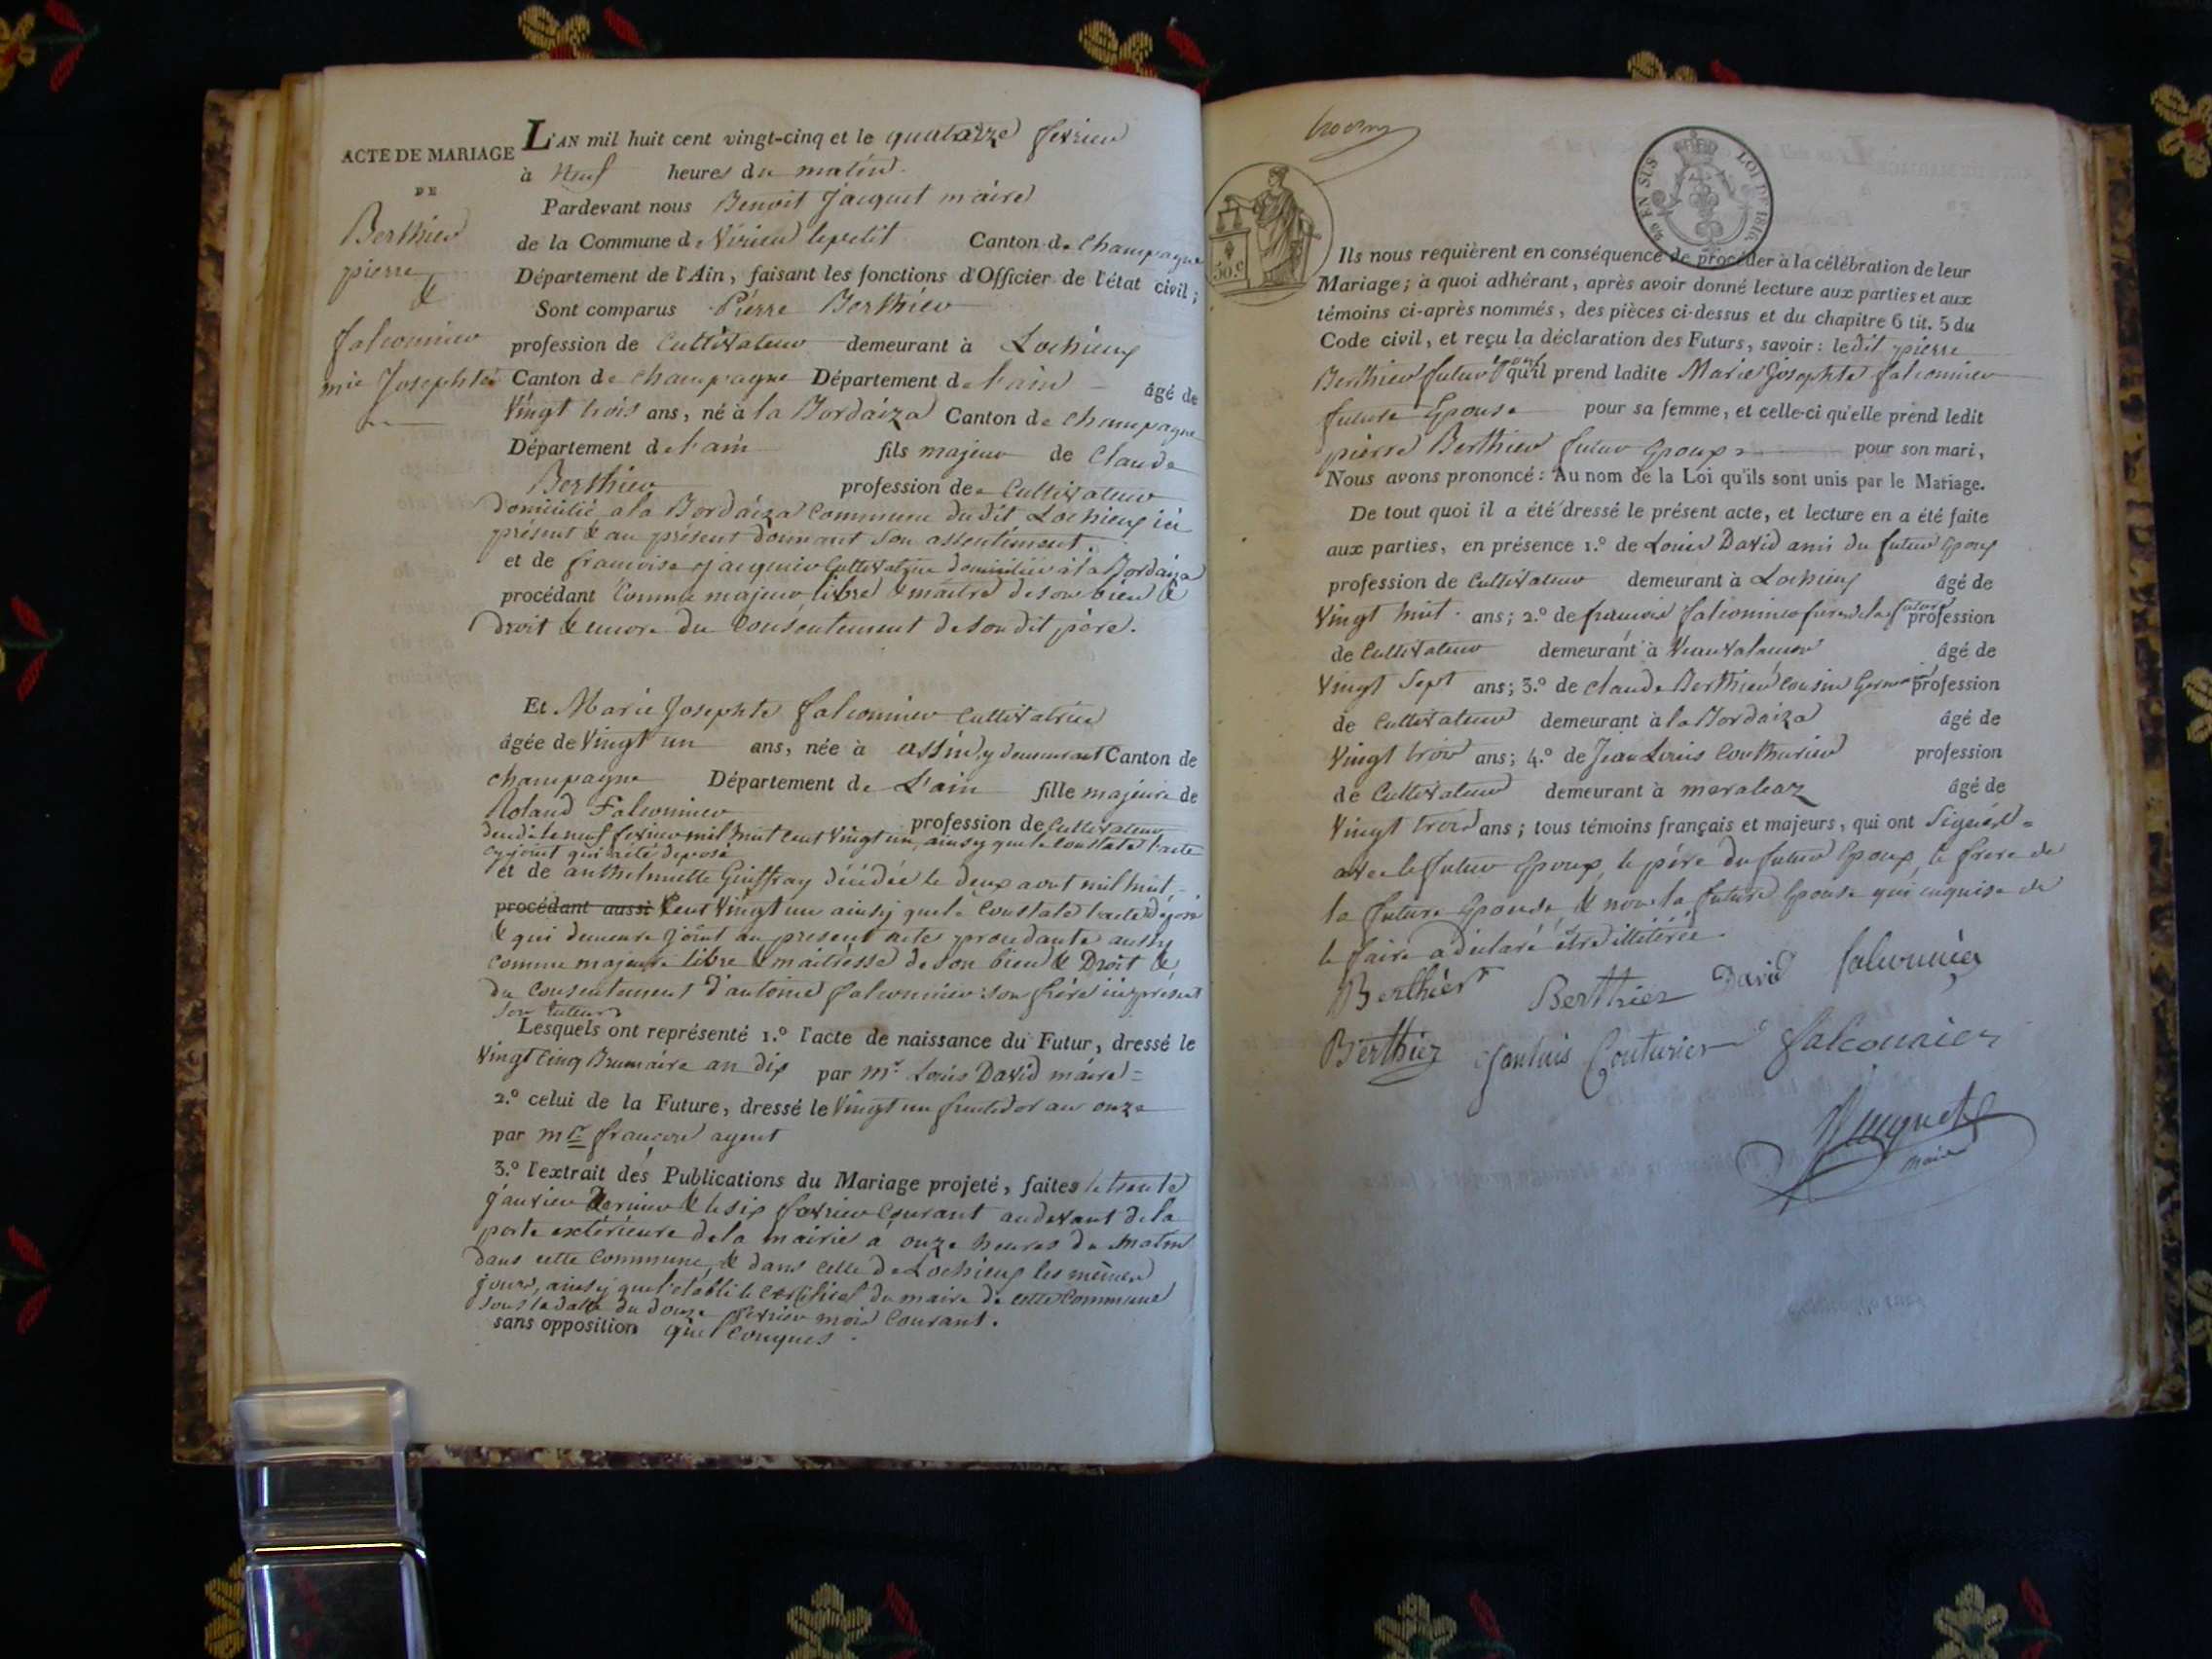 ACTE DE MARIAGE
DE
Berthier
pierre
&
falconnier
mie Josephte
L'AN mil huit cent vingt-cinq et le quatorze fevrier
à Neuf heures du matin.
Pardevant nous Benoit Jacquet maire
de la Commune de Virieu lepetit Canton de Champagne
Département de l'Ain, faisant les fonctions d'Officier de l'état civil;
Sont comparus Pierre Berthier
profession de Cultivateur demeurant à Lochieux
Canton de Champagne Département de l'ain âgé de
Vingt trois ans, né à la Bordaiza Canton de Champagne
Département de l'ain fils majeur de Claude
Berthier profession de Cultivateur
domicilié a la Bordaiza Commune dudit Lochieux ici
présent & au présent donnant son assentiment.
et de francoise Cultivatrice domiciliée à la Bordaiza
procédant Comme majeur, libre & maitre de son bien &
droit & encore du Consentement de son dit père.
Et Marie Josephte falconnier Cultivatrice
âgée de Vingt un ans, née à assin, y demeurant Canton de
champagne Département de L'ain fille majeure de
Roland Falconnier profession de Cultivateur
decédé le neuf fevrier mil huit Cent Vingt un, ainsy que le Constate l'acte
cyjoint qui a été deposé
et de anthelmette Guiffray décédée le deux aout mil huit
procédant aussi Cent Vingt un ainsy que le Constate l'acte déposé
& qui demeure joint au present acte, procedante aussy
Comme majeure libre & maitresse de son bien & Droit &
du Consentement d'antoine falconnier son frère ici présent
son tuteur
Lesquels ont représenté 1.º l'acte de naissance du Futur, dressé le
Vingt Cinq Brumaire an dix par mr. Louis David maire =
2.º celui de la Future, dressé le Vingt un fructidor an onze
par mr. françon agent
3.º l'extrait des Publications du Mariage projeté, faites le trente
janvier dernier & le six fevrier Courant au devant de la
porte extérieure de la mairie à onze heures du matin
dans cette Commune, & dans Celle de Lochieux les mêmes
jours, ainsy que l'établi le Certificat du maire de cette Commune
sous la date du douze fevrier mois Courant.
sans opposition quelconques.
50.c
EN SUS LOI DE 1816
Ils nous requièrent en conséquence de procéder à la célébration de leur
Mariage; à quoi adhérant, après avoir donné lecture aux parties et aux
témoins ci-après nommés, des pièces ci-dessus et du chapitre 6 tit. 5 du
Code civil, et reçu la déclaration des Futurs, savoir: ledit pierre
Berthier futur Epoux qu'il prend ladite Marie Josephte falconnier
future Epouse pour sa femme, et celle-ci qu'elle prend ledit
pierre Berthier futur Epoux pour son mari,
Nous avons prononcé: Au nom de la Loi qu'ils sont unis par le Mariage.
De tout quoi il a été dressé le présent acte, et lecture en a été faite
aux parties, en présence 1.º de Louis David ami du futur Epoux
profession de Cultivateur demeurant à Lochieux âgé de
Vingt huit ans; 2.º de francois falconnier frere de la future profession
de Cultivateur demeurant à âgé de
Vingt Sept ans; 3.º de Claude Berthier Cousin Germain profession
de Cultivateur demeurant à la Bordaiza âgé de
Vingt trois ans; 4.º de Jean Louis Couthurier profession
de Cultivateur demeurant à maraleaz âgé de
Vingt trois ans; tous témoins français et majeurs, qui ont Signés =
avec le futur Epoux, le père du futur Epoux, le frere de
la future Epouse, & non la future Epouse qui enquise de
le faire a déclaré être illitérée.
Berthier Berthier David falconnier
Berthier Janluis Couturier falconnier
Jacquet
maire